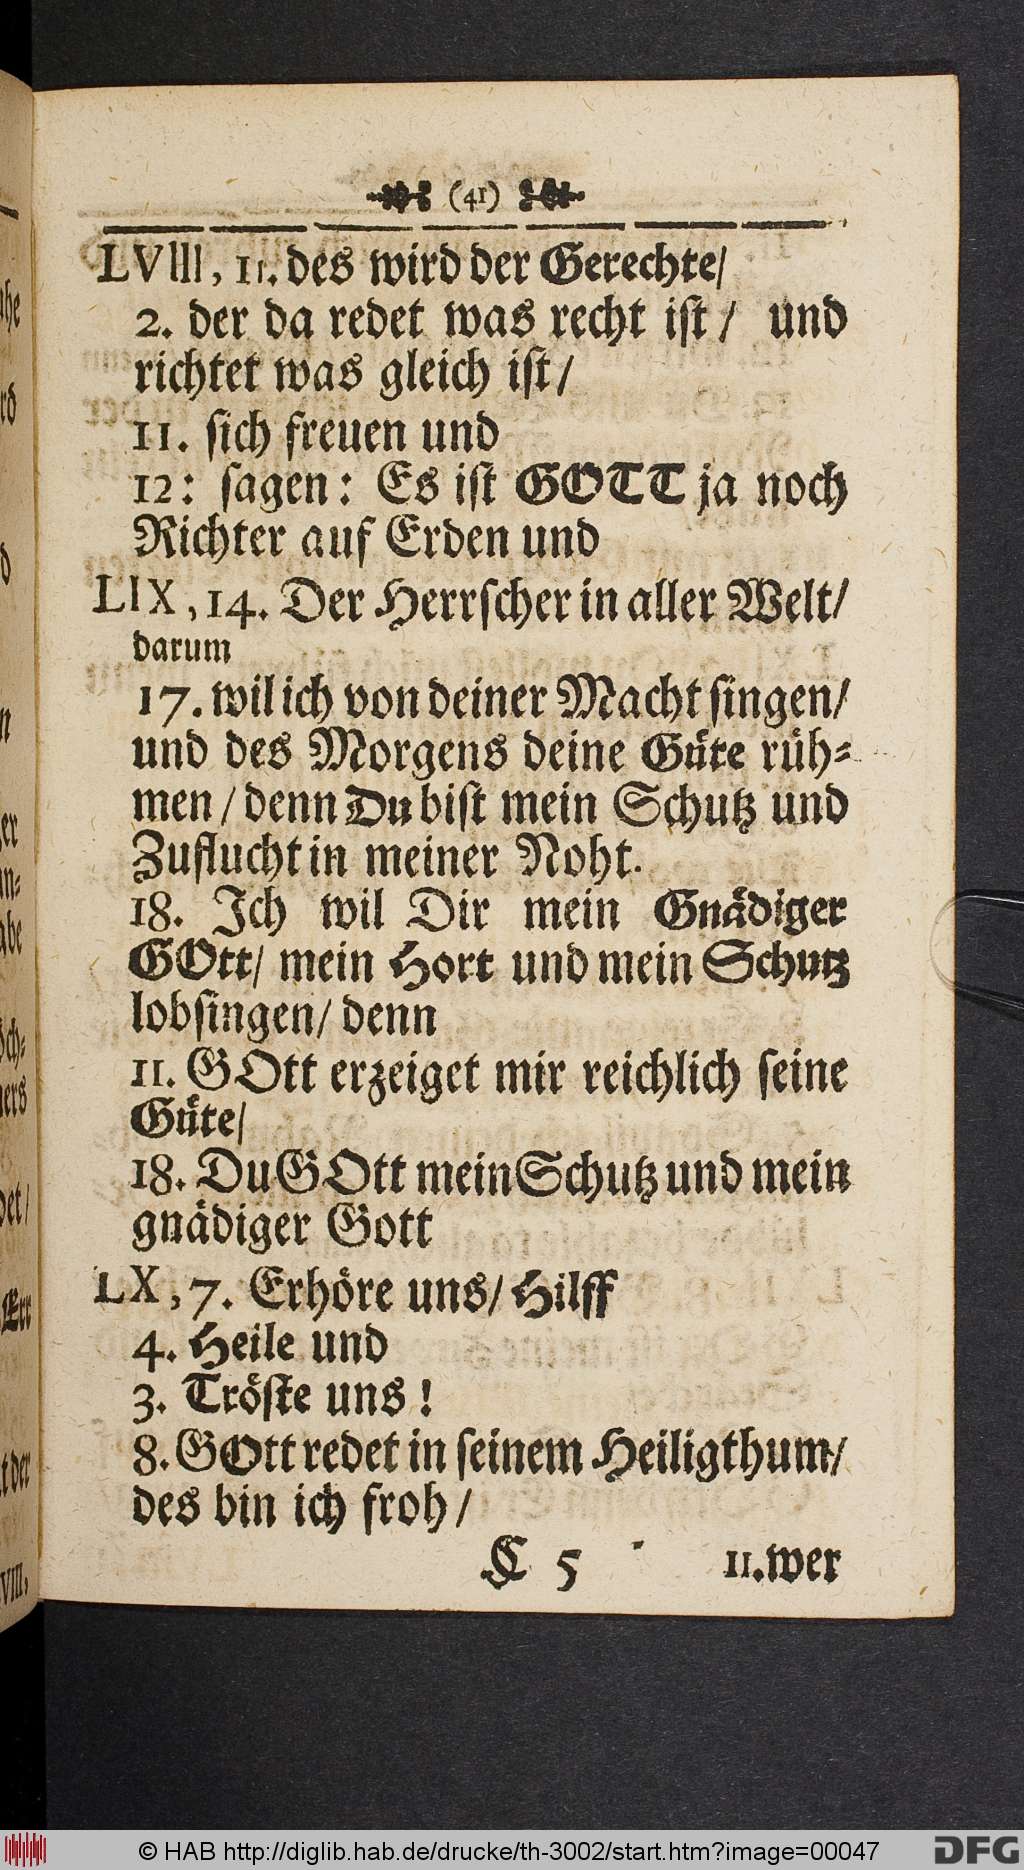 (41)
LVIII, 11. des wird der Gerechte/
2. der da redet was recht ist/ und
richtet was gleich ist/
11. sich freuen und
12: sagen: Es ist GOTT ja noch
Richter auf Erden und
LIX, 14. Der Herrscher in aller Welt/
darum
17. wil ich von deiner Macht singen/
und des Morgens deine Güte rüh-
men/ denn Du bist mein Schutz und
Zuflucht in meiner Noht.
18. Ich wil Dir mein Gnädiger
GOtt/ mein Hort und mein Schutz
lobsingen/ denn
11. GOtt erzeiget mir reichlich seine
Güte/
18. Du GOtt mein Schutz und mein
gnädiger Gott
LX, 7. Erhöre uns/ Hilff
4. Heile und
3. Tröste uns!
8. GOtt redet in seinem Heiligthum/
des bin ich froh/
C 5 11. wer
© HAB http://diglib.hab.de/drucke/th-3002/start.htm?image=00047
DFG